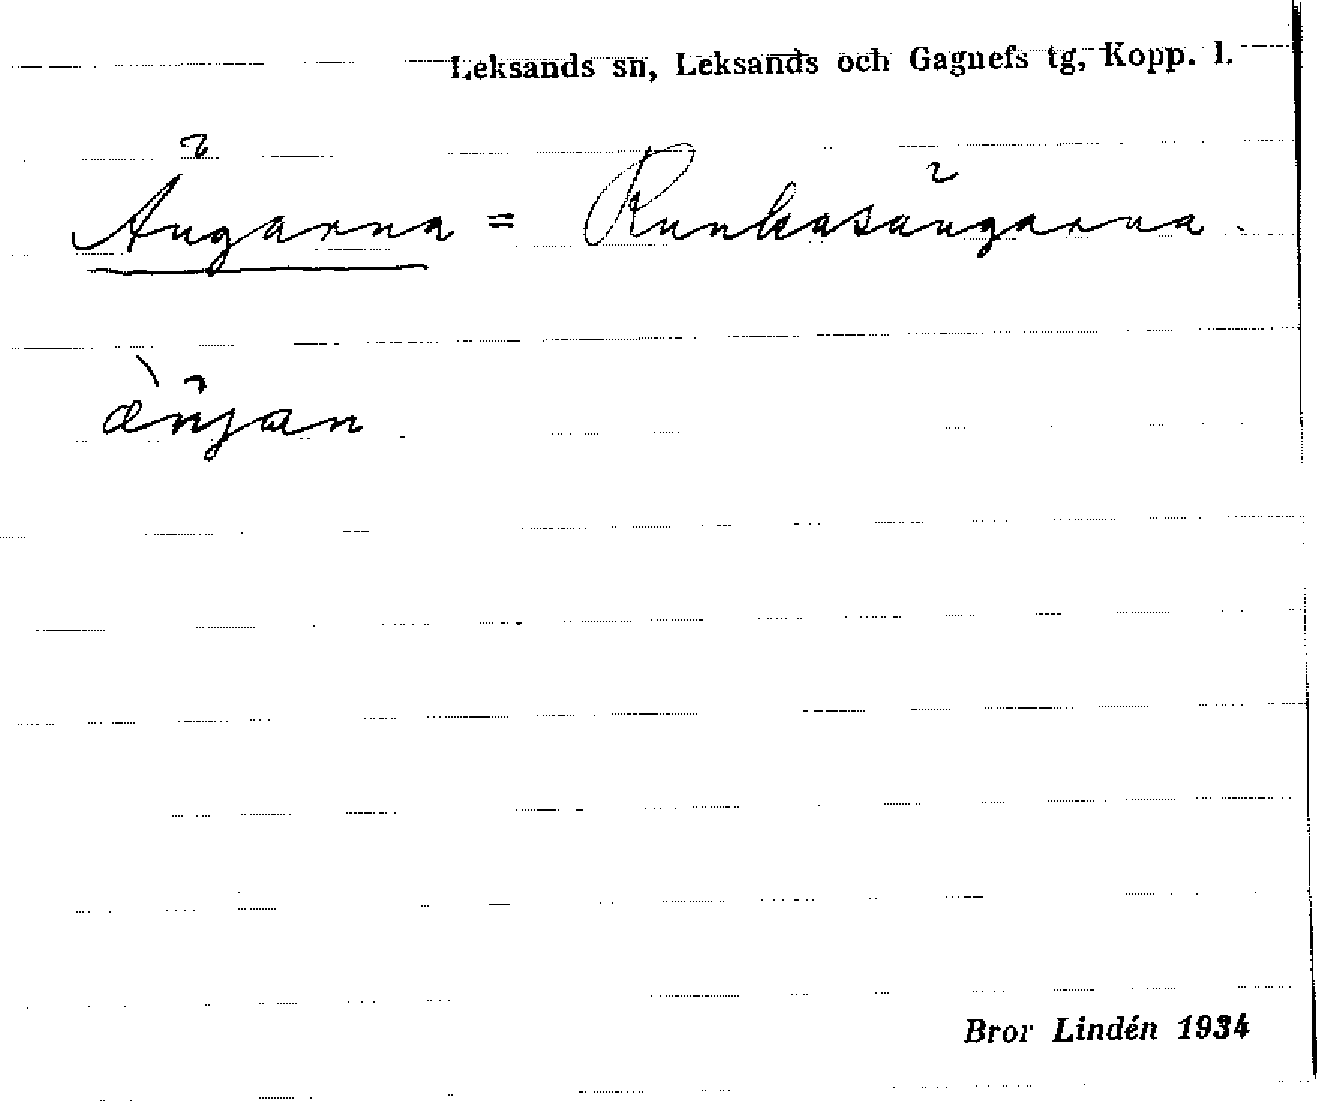 Leksands sn, Leksands och Gagnefs tg, Kopp. l.
Ängarna = Runkasängarna.
Bror Lindén 1934